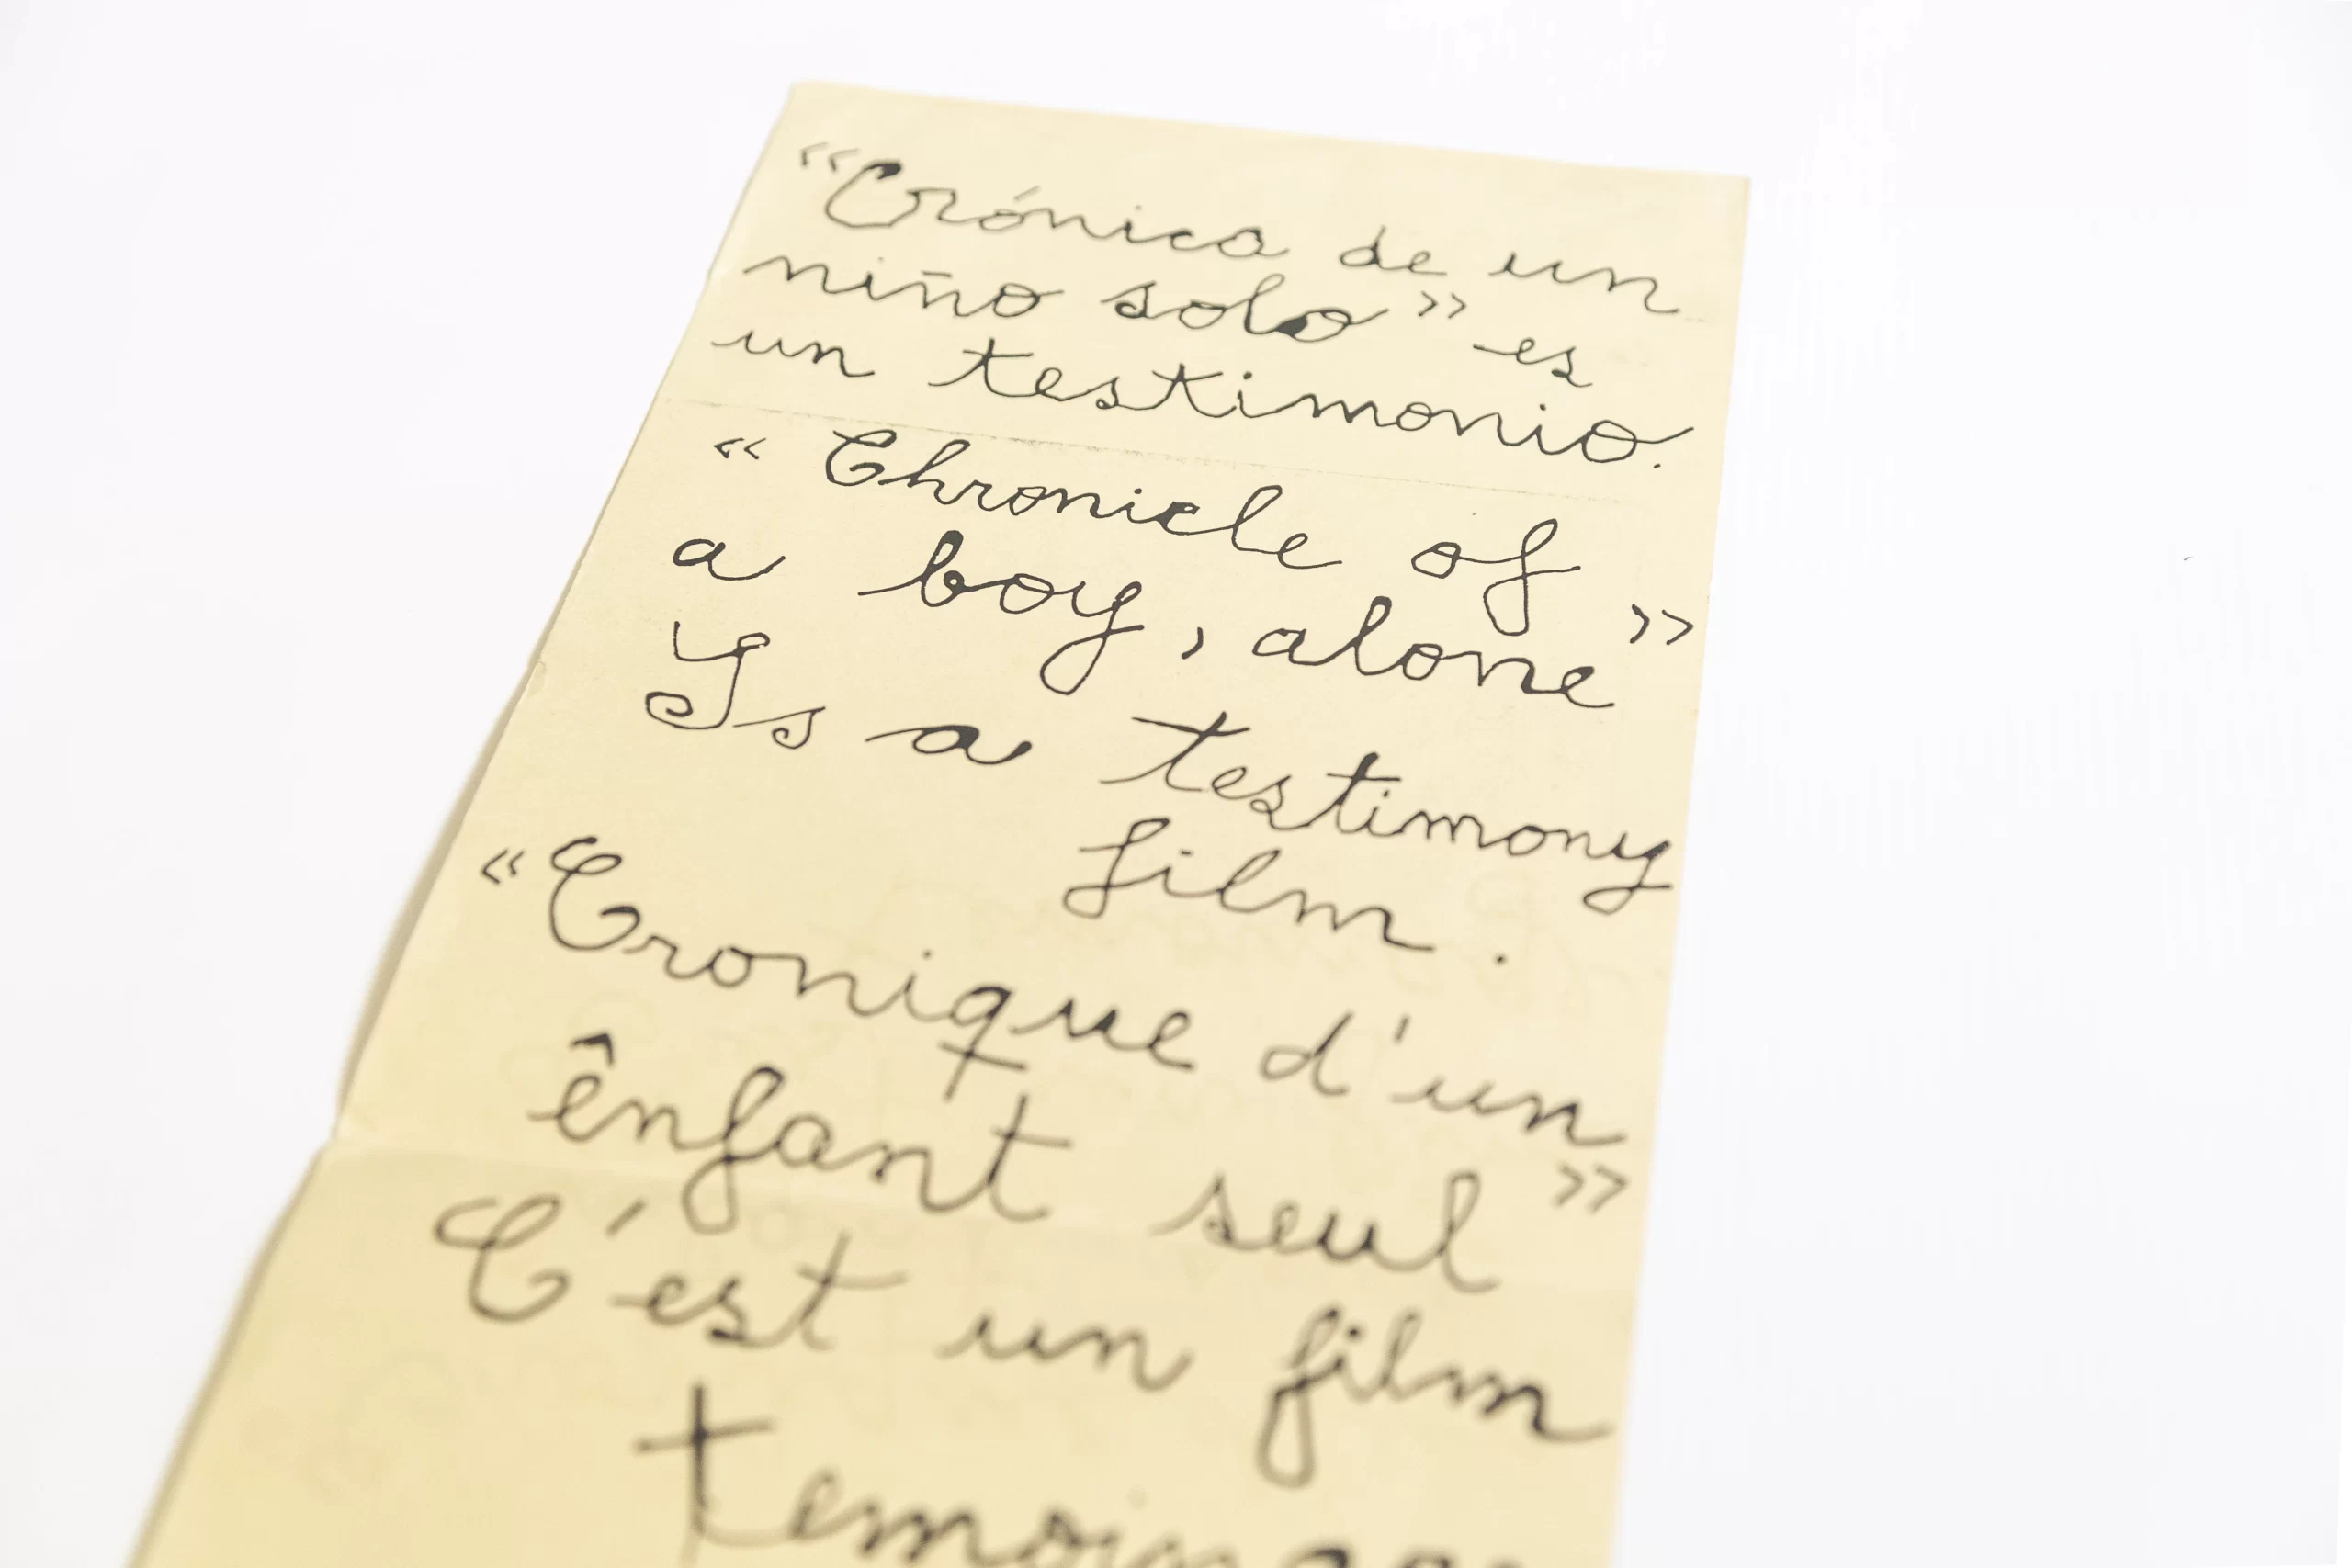 «Crónica de un
niño solo» es
un testimonio.
« Chronicle of
a boy, alone»
Is a testimony
film.
«Cronique d'un
ênfant seul»
C'est un film